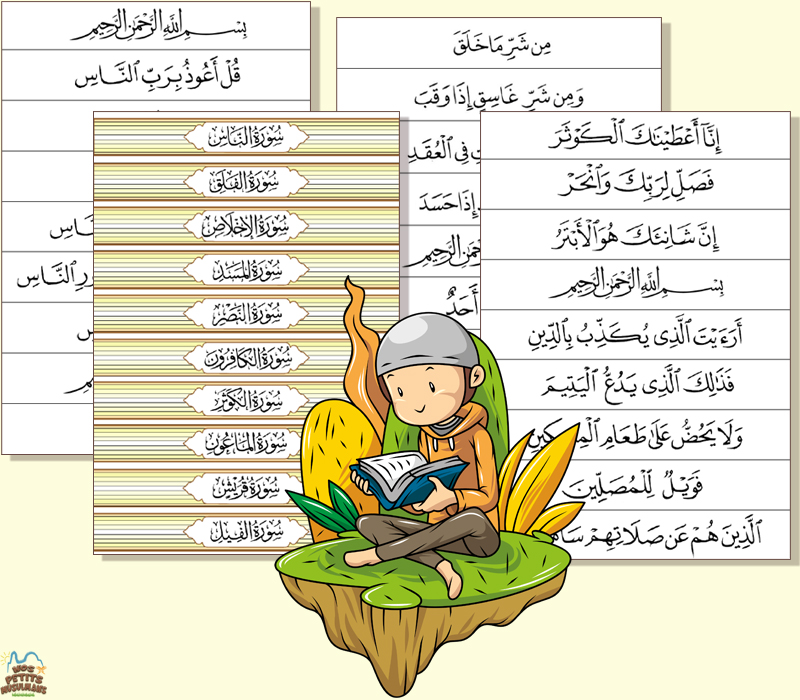 بِسْمِ ٱللَّهِ ٱلرَّحْمَٰنِ ٱلرَّحِيمِ
قُلْ أَعُوذُ بِرَبِّ ٱلنَّاسِ
ٱلنَّاسِ
ٱلنَّاسِ
مِن شَرِّ مَا خَلَقَ
وَمِن شَرِّ غَاسِقٍ إِذَا وَقَبَ
فِى ٱلْعُقَدِ
إِذَا حَسَدَ
ٱلرَّحِيمِ
أَحَدٌ
سُورَةُ النَّاسِ
سُورَةُ الفَلَقِ
سُورَةُ الإِخْلَاصِ
سُورَةُ المَسَدِ
سُورَةُ النَّصْرِ
سُورَةُ الكَافِرُونَ
سُورَةُ الكَوْثَرِ
سُورَةُ المَاعُونِ
سُورَةُ قُرَيْشٍ
سُورَةُ الفِيلِ
إِنَّآ أَعْطَيْنَٰكَ ٱلْكَوْثَرَ
فَصَلِّ لِرَبِّكَ وَٱنْحَرْ
إِنَّ شَانِئَكَ هُوَ ٱلْأَبْتَرُ
بِسْمِ ٱللَّهِ ٱلرَّحْمَٰنِ ٱلرَّحِيمِ
أَرَءَيْتَ ٱلَّذِى يُكَذِّبُ بِٱلدِّينِ
فَذَٰلِكَ ٱلَّذِى يَدُعُّ ٱلْيَتِيمَ
وَلَا يَحُضُّ عَلَىٰ طَعَامِ
فَوَيْلٌ لِّلْمُصَلِّينَ
ٱلَّذِينَ هُمْ عَن صَلَاتِهِمْ
NOS
PETITS
MUSULMANS